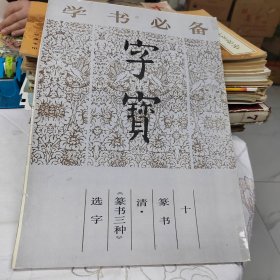 学书必备
字寶
十
篆书
清·
《篆书三种》
选字